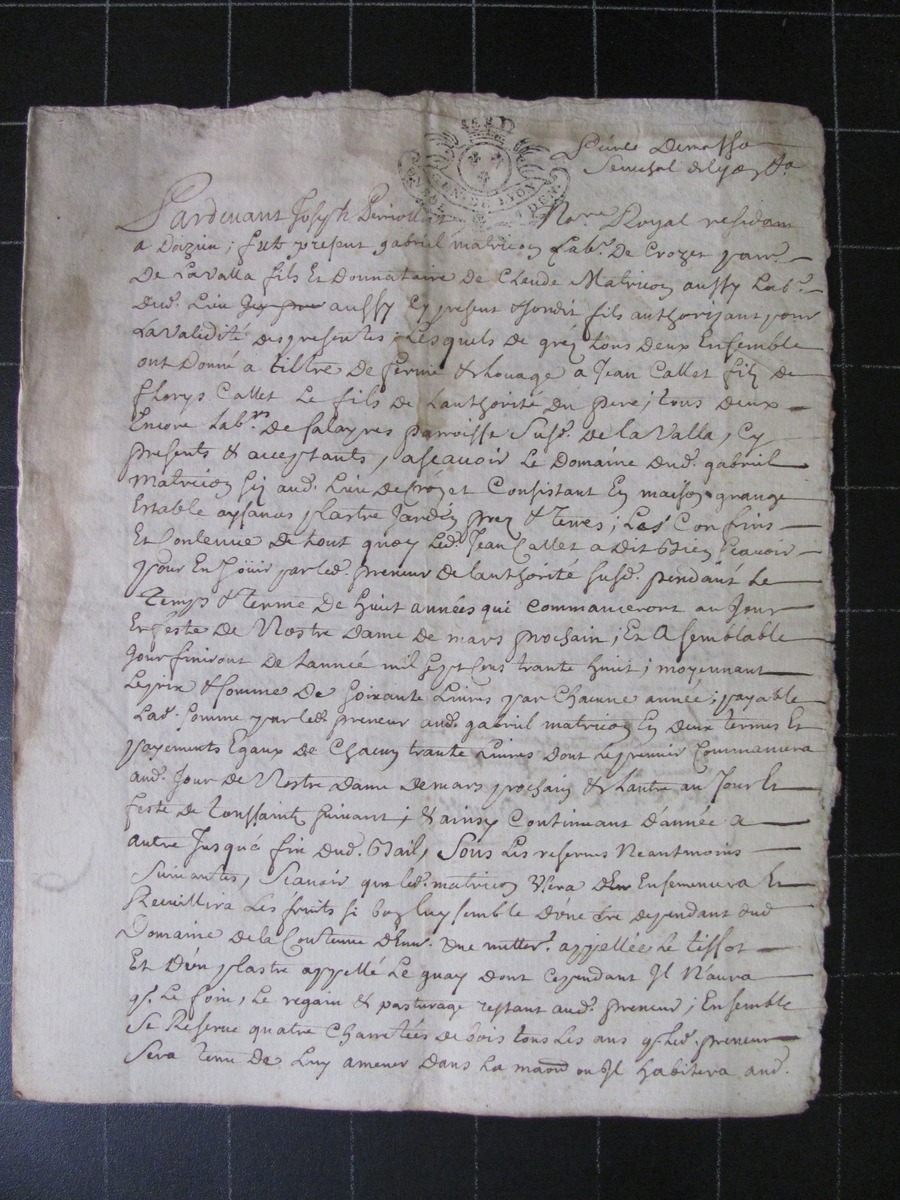 GEN. DE LYON
Senechal
Pardevant Joseph No.re Royal residant
a Doizieu; fut present gabriel matricon Lab.r De Crozet parr.
De Lavalla fils Et Donnataire De Claude Matricon aussy Lab.r
Dud. Lieu aussy Cy present & sondit fils authorisant pour
La Validité des presentes; Lesquels de gré tous deux Ensemble
ont Donné a tiltre De ferme & Louage a Jean Callet filz De
Florys Callet Le fils De Lauthorité Du pere; tous deux
Encore Lab.rs De falayres parroisse Susd. De la Valla, Cy
presents & acceptants, ascavoir Le Domaine Dud. gabriel
Matricon sis aud. Lieu De Crozet Consistant En maison grange
Estable aysances plastre Jardin prez & terres; Les Confins
Et Contenue De tout quoy Led. Jean Callet a dit Bien scavoir
pour En Joüir par led. preneur de lauthorité susd. pendant Le
Temps & terme De huit années qui Commanceront au Jour
Et feste De Nostre Dame De mars prochain; Et a semblable
Jour finiront De Lannée mil sept Cens trante huit; moyennant
Le prix & somme De soixante Livres par Chacune année; payable
Lad. somme par led. preneur aud. gabriel matricon En deux termes Et
payements Egaux De Chacun trante Livres dont le premier Commancera
aud. Jour De Nostre Dame De mars prochain & Lautre au Jour Et
feste de Toussaint suivant; & ainsy Continuant D'année a
autre Jusqu'a fin dud. Bail, Sous Les reserves Neantmoins
Suivantes, Scavoir que led. matricon Ensemencera Et
Recuillira Les fruits si bon luy semble D'une tre dependant dud
Domaine De la Contenue D'Env. une metter. appellée Le tissot
Et D'un plastre appellé Le guay dont Cependant Il N'aura
q. Le foin, Le regain & pasturage restant aud. preneur; Ensemble
Se Reserve quatre Charretées De bois tous Les ans q. Led. preneur
Sera tenu De Luy amener Dans La maon ou Il habitera aud.